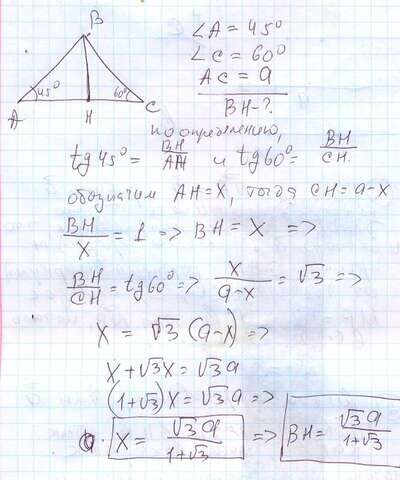 B
45°
60°
A
H
C
∠A = 45°
∠C = 60°
AC = a
BH-?
по определению,
tg45° = BH/AH и tg60° = BH/CH
обозначим AH=X, тогда CH=a-x
BH/X = 1 => BH = X =>
BH/CH = tg60° => X/(a-x) = √3 =>
X = √3 (a-x) =>
X+√3X = √3a
(1+√3)X = √3a =>
X = √3a/(1+√3) => BH = √3a/(1+√3)